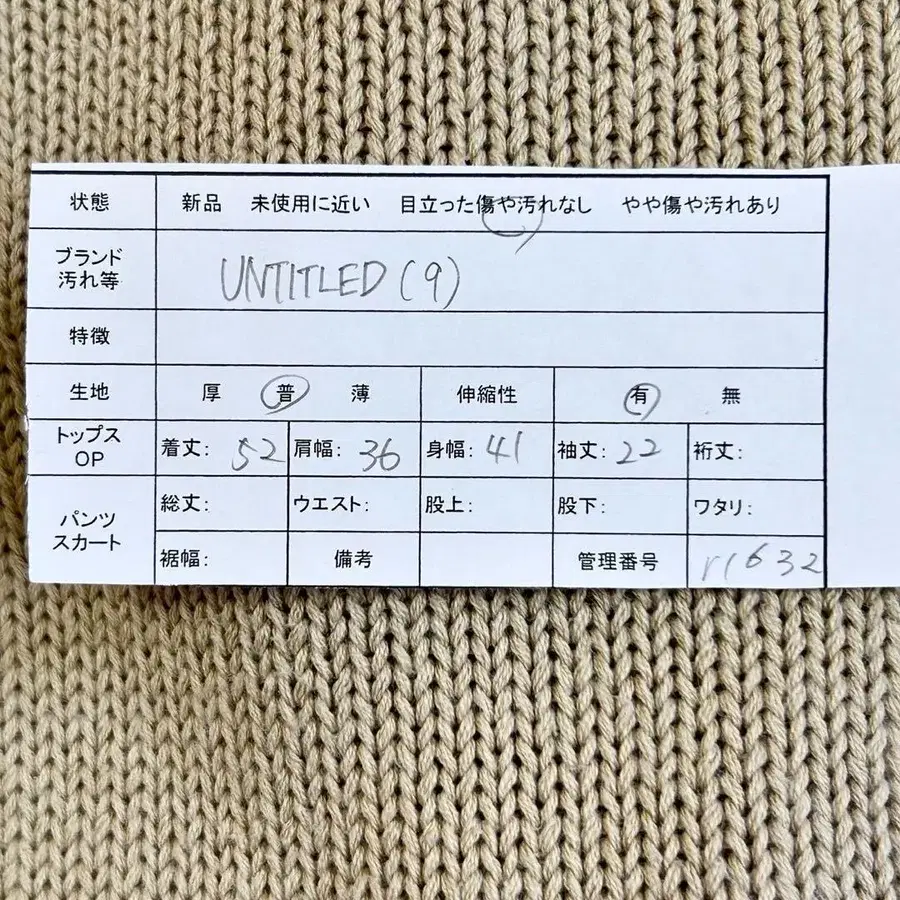 状態 新品 未使用に近い 目立った傷や汚れなし やや傷や汚れあり
ブランド
汚れ等
UNTITLED (9)
特徴
生地 厚 普 薄 伸縮性 有 無
トップス
OP
着丈: 52 肩幅: 36 身幅: 41 袖丈: 22 裄丈:
パンツ
スカート
総丈: ウエスト: 股上: 股下: ワタリ:
裾幅: 備考 管理番号 r1632